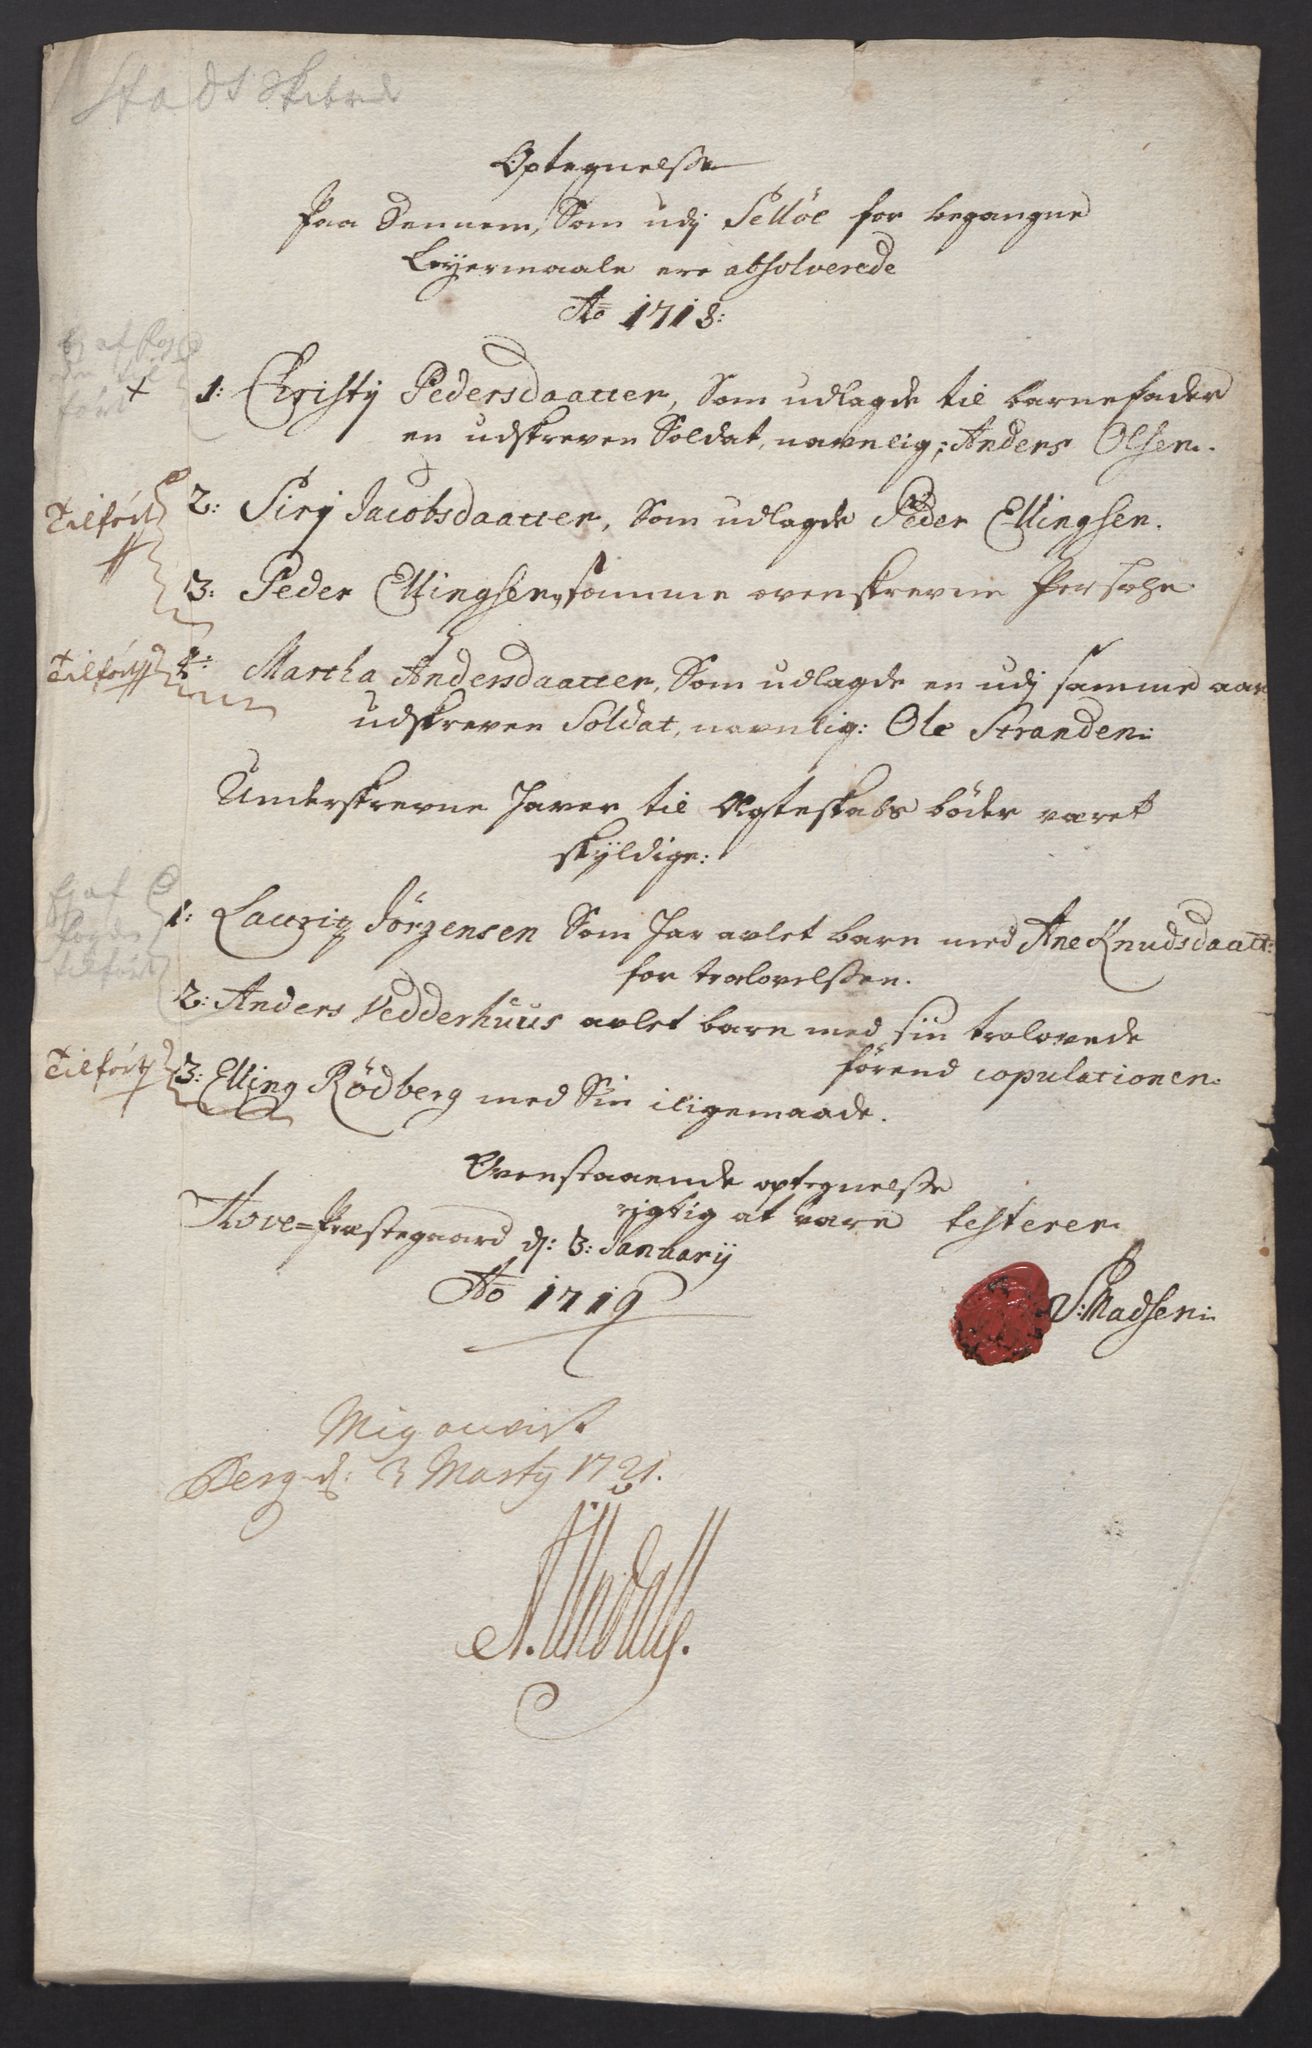 Stads Skibrede
Optegnelsse
Paa Dennem, Som udj Selløe for begangne
Leyermaale ere absolverede
Ao 1718:
1: Christy Pedersdaatter, Som udlagde til barnefader
en udskreven Soldat, navnlig; Anders Olsen.
Tilført
2: Sirj Jacobsdaatter, Som udlagde Peder Ellingsen.
3: Peder Ellingsen, samme ovenskrevne Persohn
Tilført
4: Martha Andersdaatter, Som udlagde en udj samme aar
udskreven Soldat, navnlig: Ole Stranden:
Underskrevne haver til Ægteskabs bøder været
skyldige:
Ej af
fogden
tilført
1: Lauritz Jörgensen Som har avlet barn med Ane Knudsdaatt:
for trolovelssen.
2: Anders Vedderhuus avlet barn med sin trolovede
førend copulationen.
Tilført
3: Elling Rödberg med Sin iligemaade.
Ovenstaaende optegnelsse
rigtig at være testerer
Hove=Præstegaard d: 3: Januarij
Ao 1719
S: Madsen:
Mig anvist
Berg d: 3 Martij 1721.